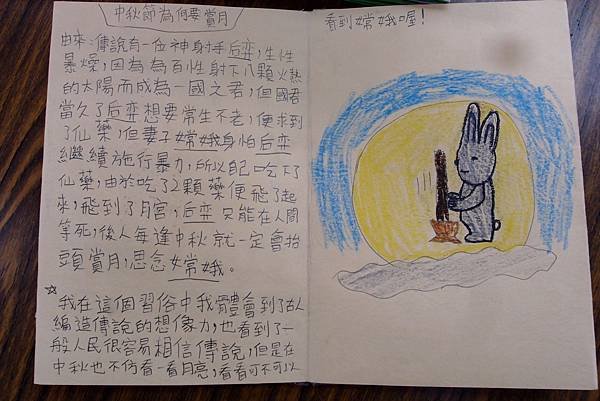 中秋節為何要賞月
由來:傳說有一位神射手后羿,生性
暴燥,因為為百性射下八顆火熱
的太陽而成為一國之君,但國君
當久了后羿想要常生不老,便求到
了仙藥,但妻子嫦娥身怕后羿
繼續施行暴力,所以自己吃下了
仙藥,由於吃了2顆藥便飛了起
來,飛到了月宮,后羿只能在人間
等死,後人每逢中秋就一定會抬
頭賞月,思念嫦娥。
☆
我在這個習俗中我體會到了古人
編造傳說的想像力,也看到了一
般人民很容易相信傳說,但是在
中秋也不仿看一看月亮,看看可不可以
看到嫦娥喔!